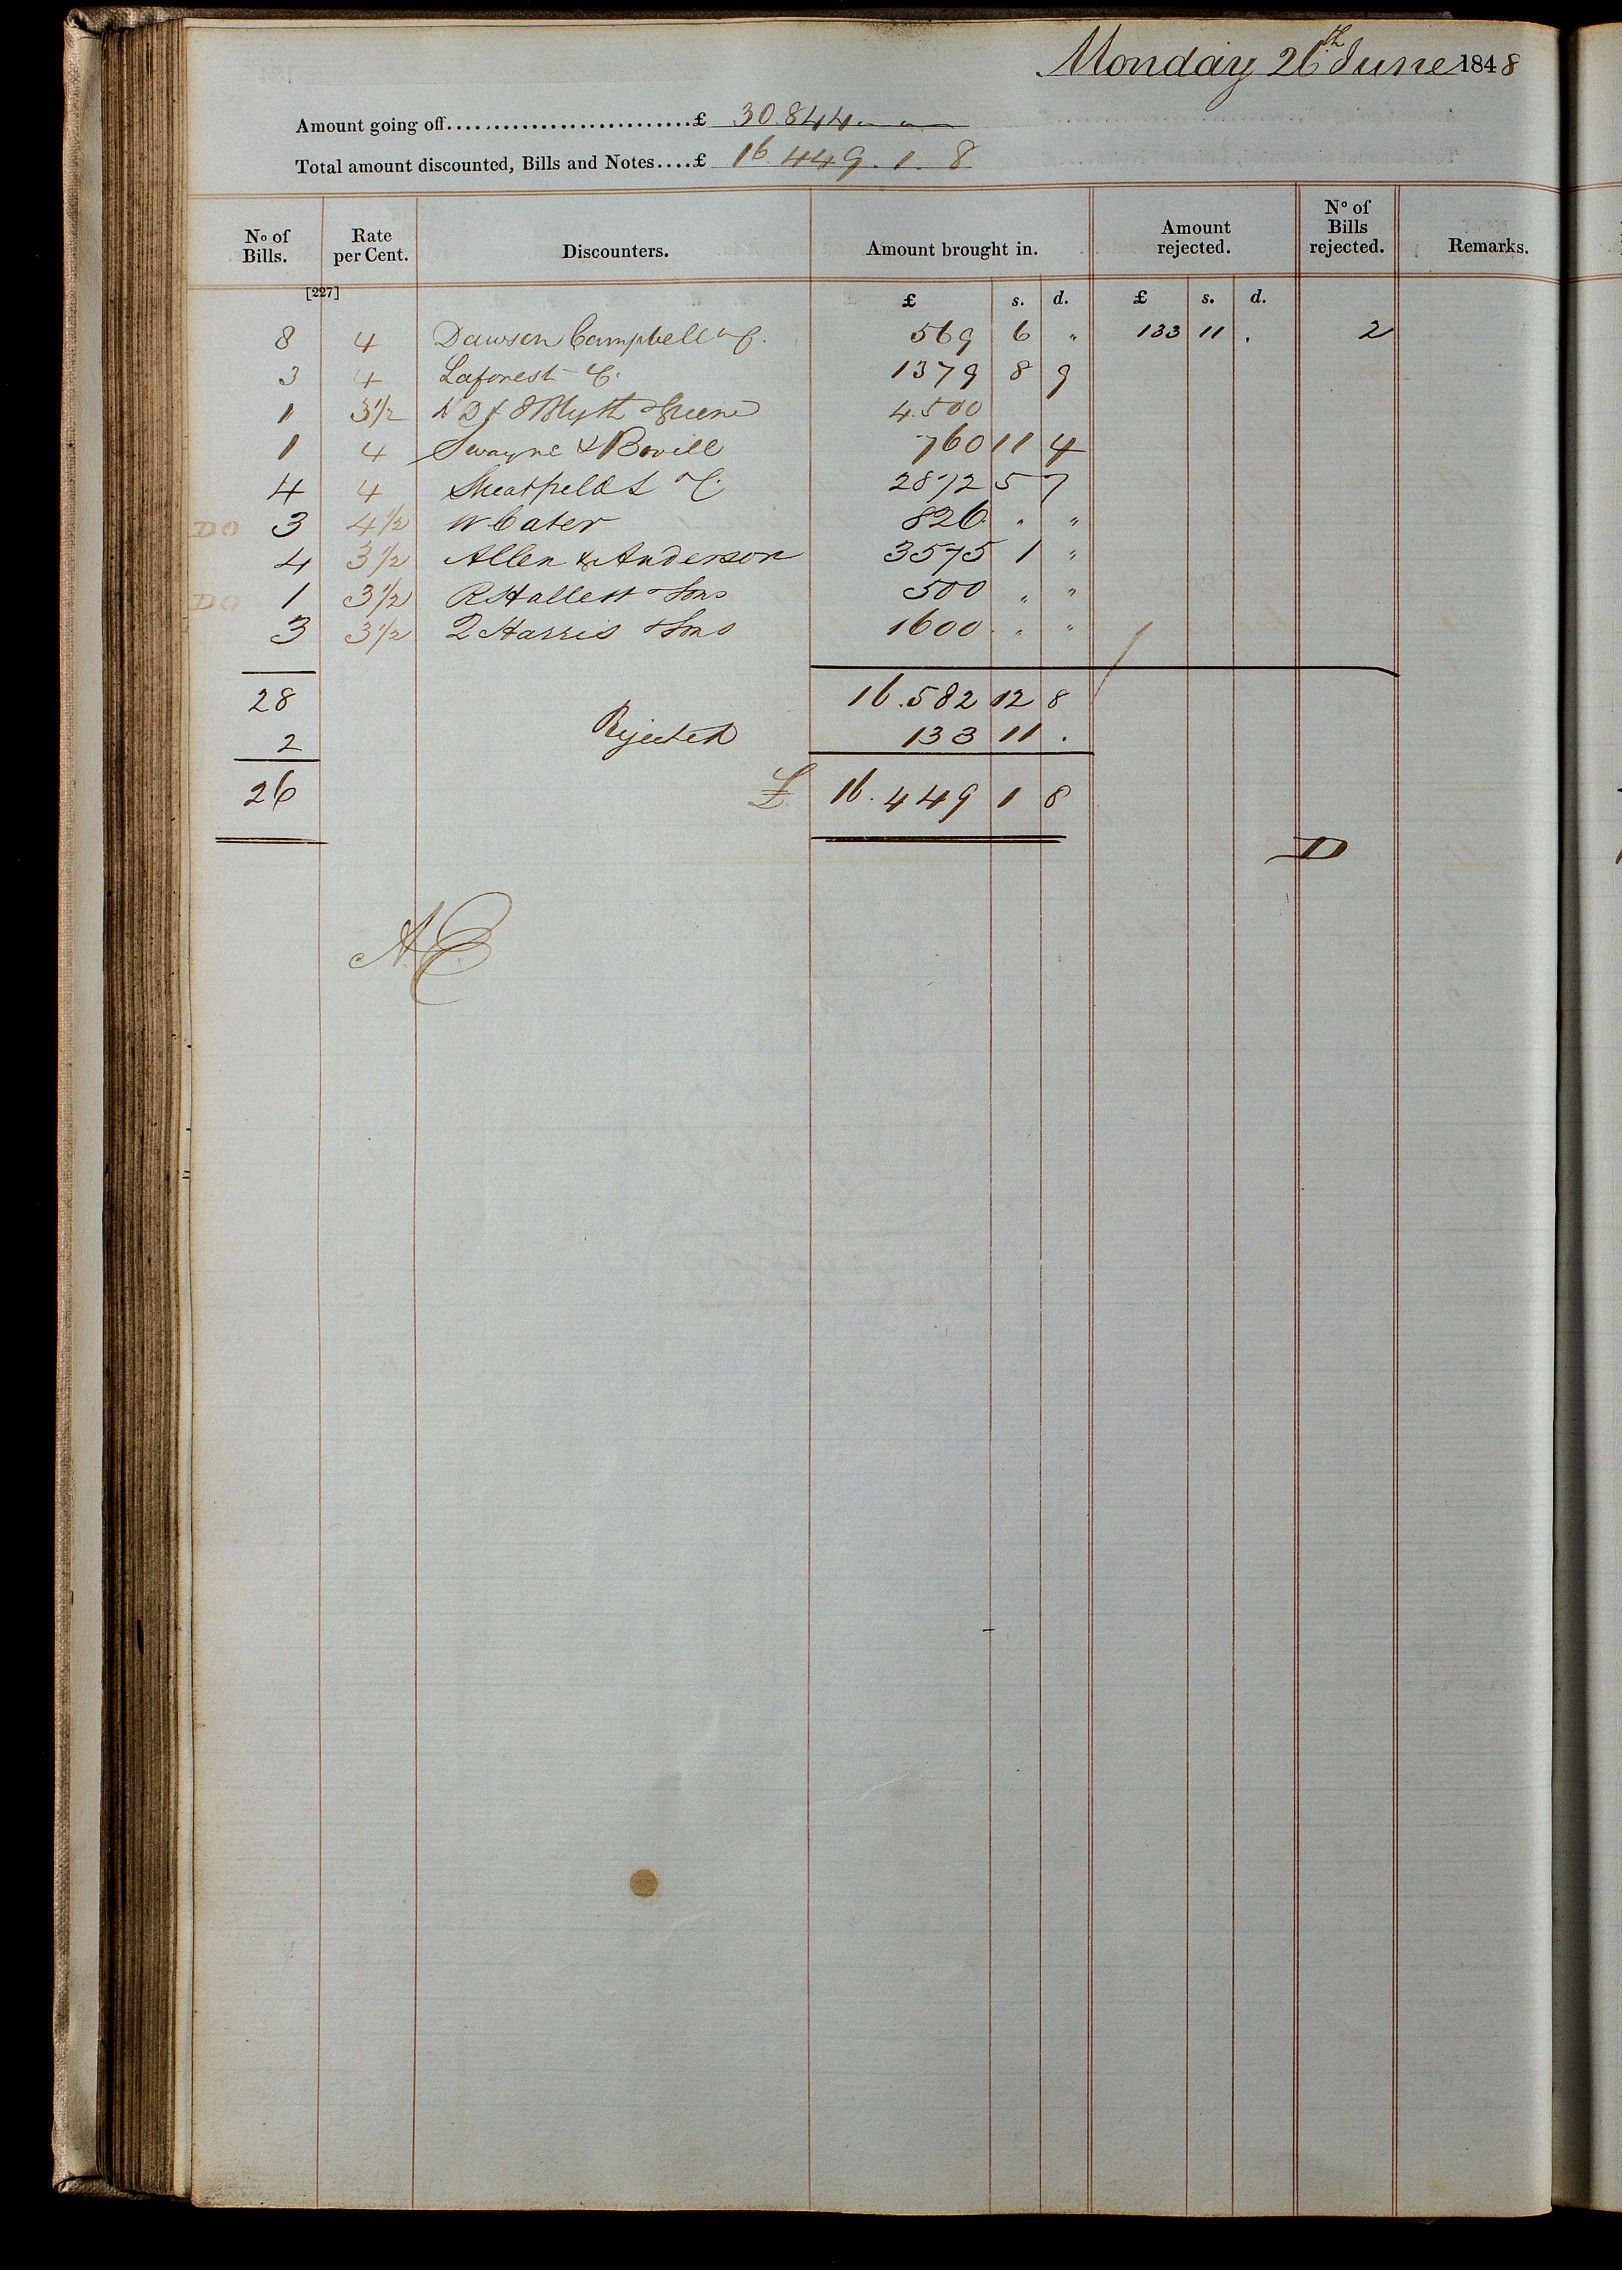 Monday 26th June 1848
Amount going off..........................£ 30.844 " "
Total amount discounted, Bills and Notes....£ 16.449.1.8
No of Bills. Rate per Cent. Discounters. Amount brought in. Amount rejected. No of Bills rejected. Remarks.
[227] £ s. d. £ s. d.
8 4 Dawson Campbell & Co. 569 6 " 133 11 . 2
3 4 Laforest & Co. 1379 8 9
1 3 1/2 Blyth & Greene 4.500
1 4 Swayne & Bovill 760 11 4
4 4 & Co. 2872 5 7
DO 3 4 1/2 W Cater 826 " "
4 3 1/2 Allen & Anderson 3575 1 "
DO 1 3 1/2 R Hallett & Sons 500 " "
3 3 1/2 Harris & Sons 1600 " "
28 16.582 12 8
2 Rejected 133 11 .
26 £ 16.449 1 8